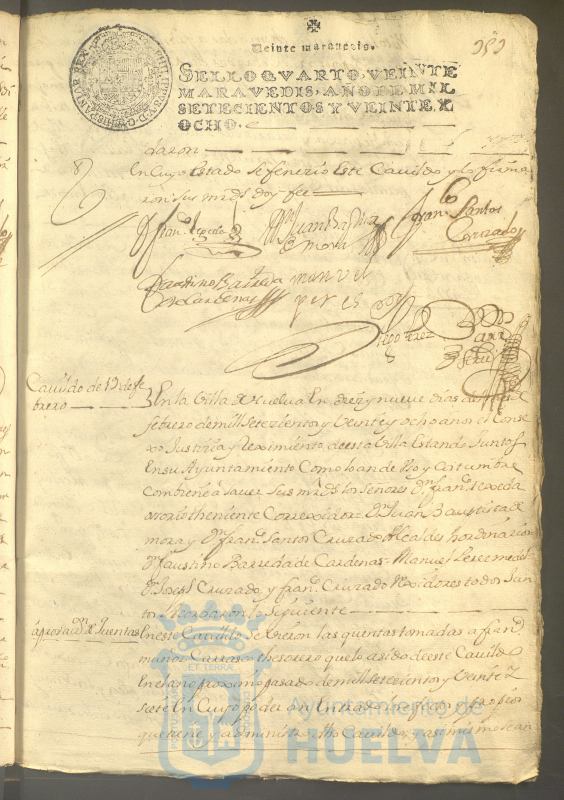 Veinte maravedis.
SELLO QVARTO, VEINTE
MARAVEDIS, AÑO DE MIL
SETECIENTOS Y VEINTE Y
OCHO.
daron
En cuyo Estado Se fenecio Este Cavildo y lo firma
ron sus mrds doy fee
Juan Bauptista
de Mora
Fran.co Santos
Cruzado
Faustino Barreda
de Cardenas
manuel
peres
Diego
Cavildo de 19 de fe
brero
En la Villa de Huelva En diez y nueve dias del mes de
febrero de mill Setezientos y Veinte y ocho años el Conse
xo Justicia y Reximiento de esta Villa Estando Juntos
En su Ayuntamiento Como lo an de Uso y Costumbre
Combiene a Saver Sus mrds los Señores Dn fran.co
theniente Correxidor Dn Juan Bauptista de
mora y Dn fran.co Santos Cruzado Alcaldes hordinarios
Dn faustino Barreda de Cardenas Manuel Perez
Dn Joseph Cruzado, y fran.co Cruzado Rexidores todos Jun
tos Acordaron lo Siguiente
aprovacion de quentas
En este Cavildo Se Vieron las quentas tomadas a fran.co
muñoz Carrasco thesorero que lo a sido de este Cavildo
En el año proximo pasado de mill Setezientos y Veinte y
siete En Cuyo poder an Entrado los
que tiene y administra dho Cavildo y asimismo
Ayuntamiento de
HUELVA